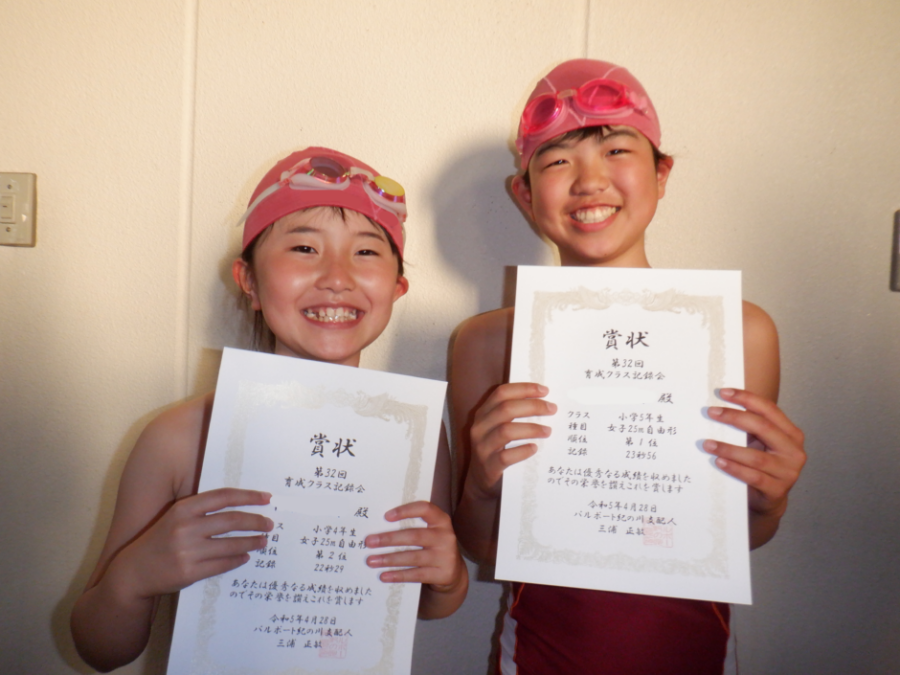 賞状
第32回
育成クラス記録会
殿
ス 小学4年生
目 女子25m自由形
順位 第2位
記録 22秒29
あなたは優秀なる成績を収めました
のでその栄誉を讃えこれを賞します
令和5年4月28日
パルポート紀の川支配人
三浦 正敏
賞状
第32回
育成クラス記録会
殿
クラス 小学5年生
種目 女子25m自由形
順位 第1位
記録 23秒56
あなたは優秀なる成績を収めました
のでその栄誉を讃えこれを賞します
令和5年4月28日
パルポート紀の川支配人
三浦 正敏